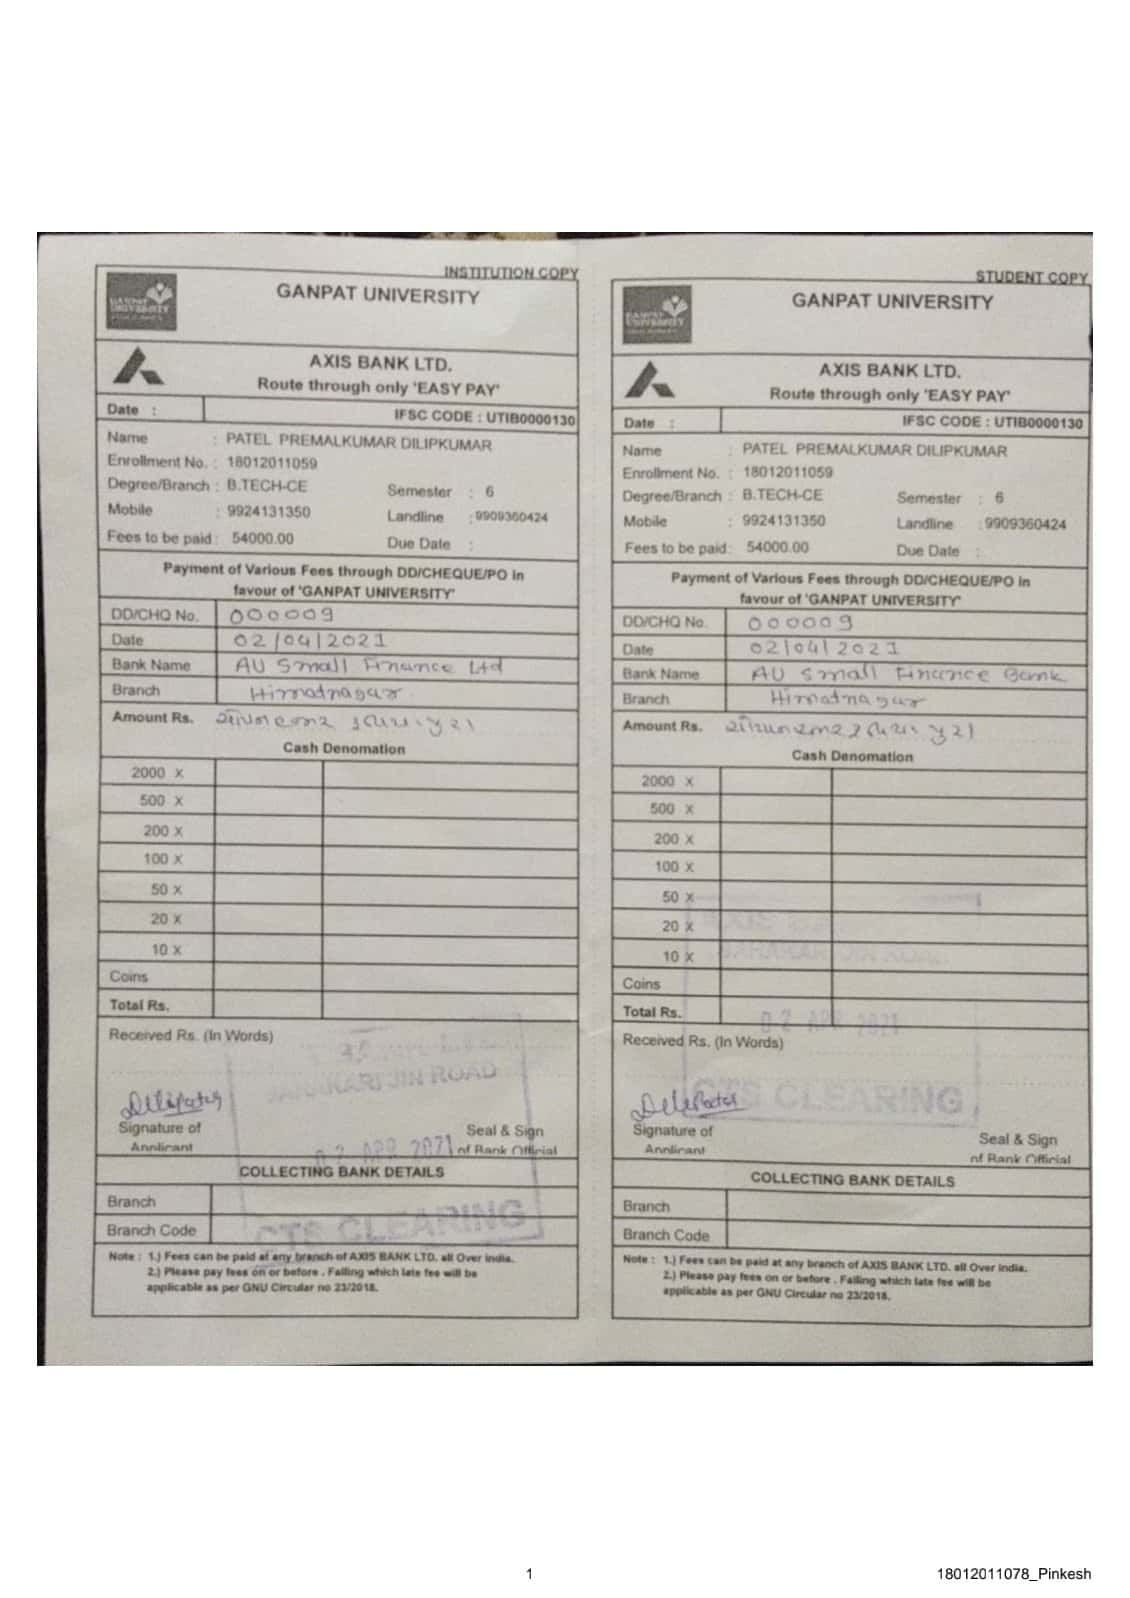 INSTITUTION COPY
GANPAT UNIVERSITY
GANPAT
UNIVERSITY
AXIS BANK LTD.
Route through only 'EASY PAY'
Date :
IFSC CODE : UTIB0000130
Name : PATEL PREMALKUMAR DILIPKUMAR
Enrollment No. : 18012011059
Degree/Branch : B.TECH-CE Semester : 6
Mobile : 9924131350 Landline : 9909360424
Fees to be paid: 54000.00 Due Date :
Payment of Various Fees through DD/CHEQUE/PO in
favour of 'GANPAT UNIVERSITY'
DD/CHQ No. 000009
Date 02/04/2021
Bank Name AU Small Finance Ltd
Branch Himatnagar
Amount Rs.
Cash Denomation
2000 X
500 X
200 X
100 X
50 X
20 X
10 X
Coins
Total Rs.
Received Rs. (In Words)
SAHAKARI JIN ROAD
02 APR 2021
CTS CLEARING
Signature of
Applicant
Seal & Sign
of Bank Official
COLLECTING BANK DETAILS
Branch
Branch Code
Note : 1.) Fees can be paid at any branch of AXIS BANK LTD. all Over India.
2.) Please pay fees on or before . Failing which late fee will be
applicable as per GNU Circular no 23/2018.
STUDENT COPY
GANPAT UNIVERSITY
GANPAT
UNIVERSITY
AXIS BANK LTD.
Route through only 'EASY PAY'
Date :
IFSC CODE : UTIB0000130
Name : PATEL PREMALKUMAR DILIPKUMAR
Enrollment No. : 18012011059
Degree/Branch : B.TECH-CE Semester : 6
Mobile : 9924131350 Landline : 9909360424
Fees to be paid: 54000.00 Due Date :
Payment of Various Fees through DD/CHEQUE/PO in
favour of 'GANPAT UNIVERSITY'
DD/CHQ No. 000009
Date 02/04/2021
Bank Name AU Small Finance Bank
Branch Himatnagar
Amount Rs.
Cash Denomation
2000 X
500 X
200 X
100 X
50 X
20 X
10 X
Coins
Total Rs.
Received Rs. (In Words)
SAHAKARI JIN ROAD
02 APR 2021
CTS CLEARING
Signature of
Applicant
Seal & Sign
of Bank Official
COLLECTING BANK DETAILS
Branch
Branch Code
Note : 1.) Fees can be paid at any branch of AXIS BANK LTD. all Over India.
2.) Please pay fees on or before . Failing which late fee will be
applicable as per GNU Circular no 23/2018.
1
18012011078_Pinkesh